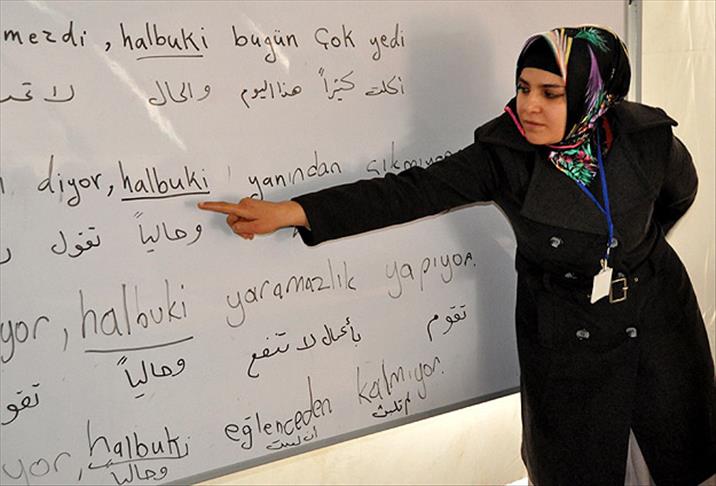 mezdi, halbuki bugün çok yedi
أكلت كثيراً هذا اليوم والحال
diyor, halbuki yanından çıkmıyor
وحالياً تقول
yor, halbuki yaramazlık yapıyor.
تقوم بأعمال لا تنفع وحالياً تقو
yor, halbuki eğlenceden kalmıyor.
وحالياً